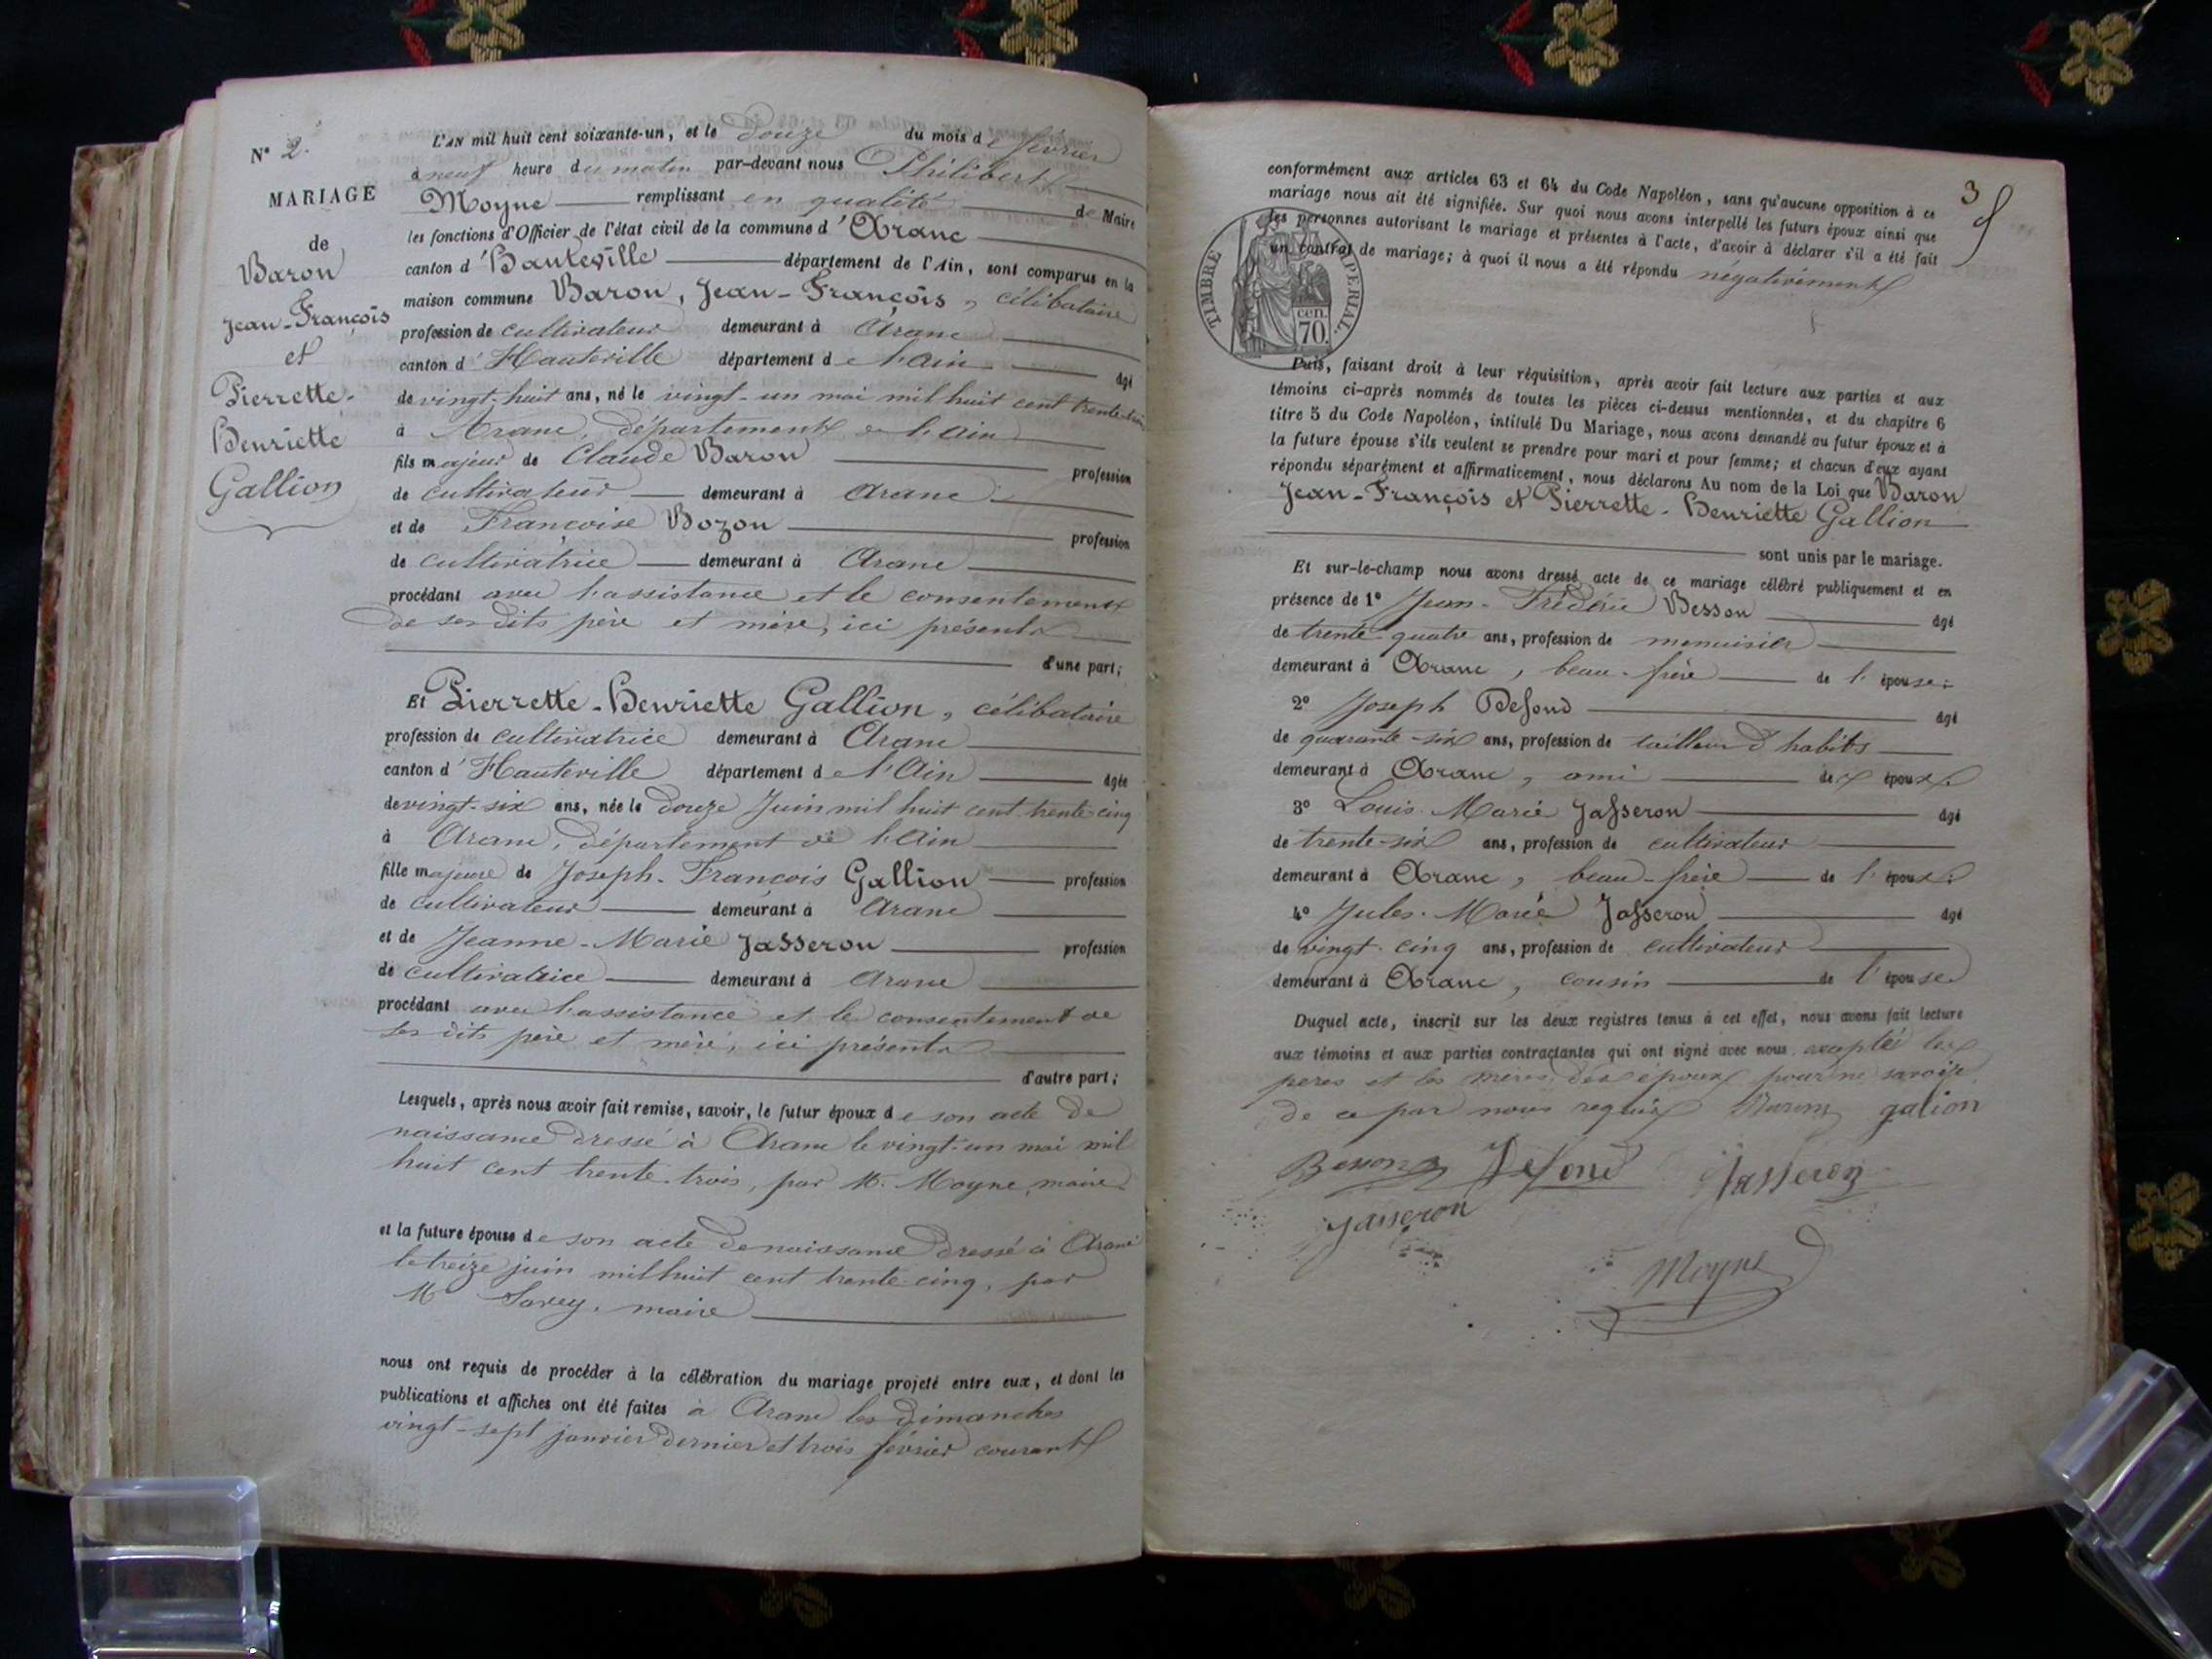 N° 2.
MARIAGE
de
Baron
Jean-François
et
Pierrette-
Henriette
Gallion
L'AN mil huit cent soixante-un, et le douze du mois de février
à neuf heure du matin par-devant nous Philibert
Moyne remplissant en qualité de Maire
les fonctions d'Officier de l'état civil de la commune d'Aranc
canton d'Hauteville département de l'Ain, sont comparus en la
maison commune Baron, Jean-François, célibataire
profession de cultivateur demeurant à Aranc
canton d'Hauteville département de l'Ain âgé
de vingt-huit ans, né le vingt-un mai mil huit cent trente-trois
à Aranc, département de l'Ain
fils majeur de Claude Baron profession
de cultivateur demeurant à Aranc
et de Françoise Bozon profession
de cultivatrice demeurant à Aranc
procédant avec l'assistance et le consentement
de ses dits père et mère, ici présents
d'une part;
Et Pierrette-Henriette Gallion, célibataire
profession de cultivatrice demeurant à Aranc
canton d'Hauteville département de l'Ain âgée
de vingt-six ans, née le douze Juin mil huit cent trente-cinq
à Aranc, département de l'Ain
fille majeure de Joseph-François Gallion profession
de cultivateur demeurant à Aranc
et de Jeanne-Marie Jasseron profession
de cultivatrice demeurant à Aranc
procédant avec l'assistance et le consentement de
ses dits père et mère, ici présents
d'autre part;
Lesquels, après nous avoir fait remise, savoir, le futur époux de son acte de
naissance dressé à Aranc le vingt-un mai mil
huit cent trente-trois, par M. Moyne, maire
et la future épouse de son acte de naissance dressé à Aranc
le treize juin mil huit cent trente-cinq, par
M Savey, maire
nous ont requis de procéder à la célébration du mariage projeté entre eux, et dont les
publications et affiches ont été faites à Aranc les dimanches
vingt-sept janvier dernier et trois février courant
3
conformément aux articles 63 et 64 du Code Napoléon, sans qu'aucune opposition à ce
mariage nous ait été signifiée. Sur quoi nous avons interpellé les futurs époux ainsi que
les personnes autorisant le mariage et présentes à l'acte, d'avoir à déclarer s'il a été fait
un contrat de mariage; à quoi il nous a été répondu négativement
TIMBRE IMPÉRIAL.
cen.
70.
Puis, faisant droit à leur réquisition, après avoir fait lecture aux parties et aux
témoins ci-après nommés de toutes les pièces ci-dessus mentionnées, et du chapitre 6
titre 5 du Code Napoléon, intitulé Du Mariage, nous avons demandé au futur époux et à
la future épouse s'ils veulent se prendre pour mari et pour femme; et chacun d'eux ayant
répondu séparément et affirmativement, nous déclarons Au nom de la Loi que Baron
Jean-François et Pierrette-Henriette Gallion
sont unis par le mariage.
Et sur-le-champ nous avons dressé acte de ce mariage célébré publiquement et en
présence de 1° Jean-Frédéric Besson âgé
de trente-quatre ans, profession de menuisier
demeurant à Aranc, beau-frère de l'épouse;
2° Joseph Defond âgé
de quarante-six ans, profession de tailleur d'habits
demeurant à Aranc, ami des époux.
3° Louis-Marie Jasseron âgé
de trente-six ans, profession de cultivateur
demeurant à Aranc, beau-frère de l'époux;
4° Jules-Marie Jasseron âgé
de vingt-cinq ans, profession de cultivateur
demeurant à Aranc, cousin de l'épouse
Duquel acte, inscrit sur les deux registres tenus à cet effet, nous avons fait lecture
aux témoins et aux parties contractantes qui ont signé avec nous, excepté les
pères et les mères des époux pour ne savoir
de ce par nous requis Baron galion
Besson Defond Jasseron
Jasseron
Moyne